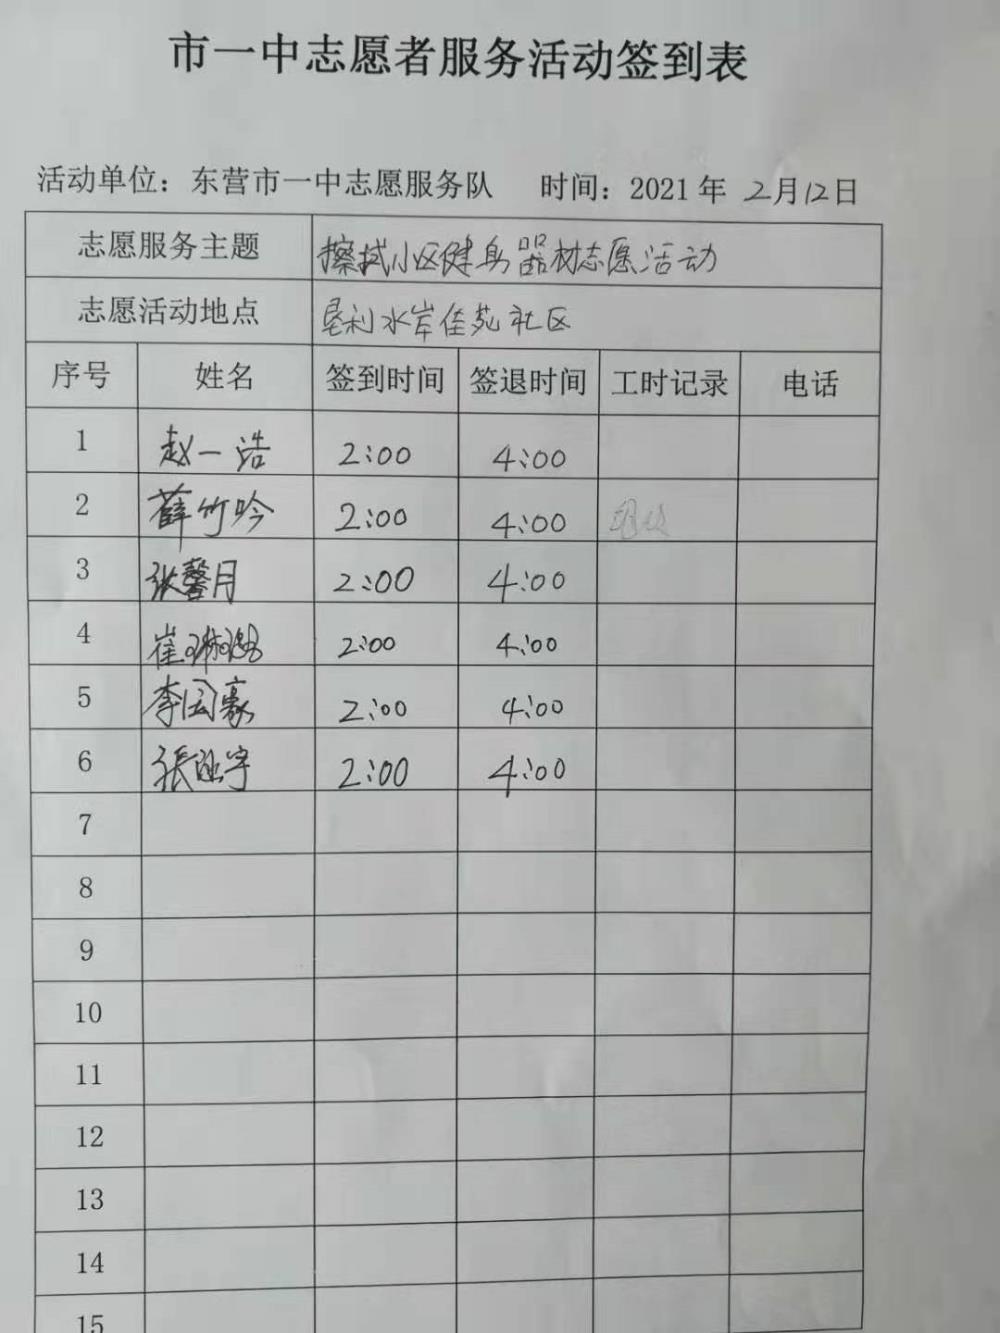 市一中志愿者服务活动签到表
活动单位：东营市一中志愿服务队 时间：2021年 2月12日
志愿服务主题 擦拭小区健身器材志愿活动
志愿活动地点 垦利水岸佳苑社区
序号 姓名 签到时间 签退时间 工时记录 电话
1 赵一浩 2:00 4:00
2 薛竹吟 2:00 4:00
3 张馨月 2:00 4:00
4 崔 2:00 4:00
5 李国豪 2:00 4:00
6 張 宇 2:00 4:00
7
8
9
10
11
12
13
14
15